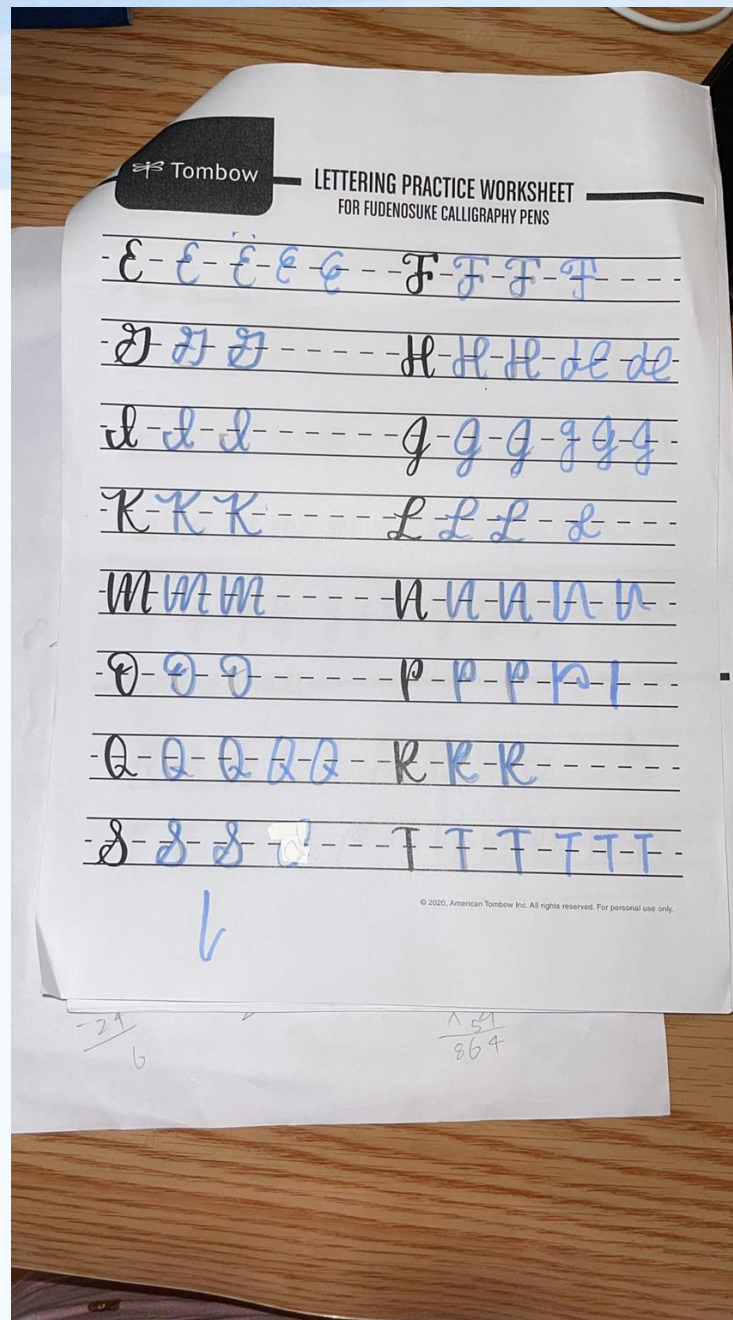 Tombow
LETTERING PRACTICE WORKSHEET
FOR FUDENOSUKE CALLIGRAPHY PENS
E E E E E F F F F
G G G H H H H H
I I I J J J J J J
K K K L L L L
M M M N N N N N
O O O P P P P
Q Q Q Q Q R R R
S S S T T T T T T
© 2020, American Tombow Inc. All rights reserved. For personal use only.
-24
6
54
864